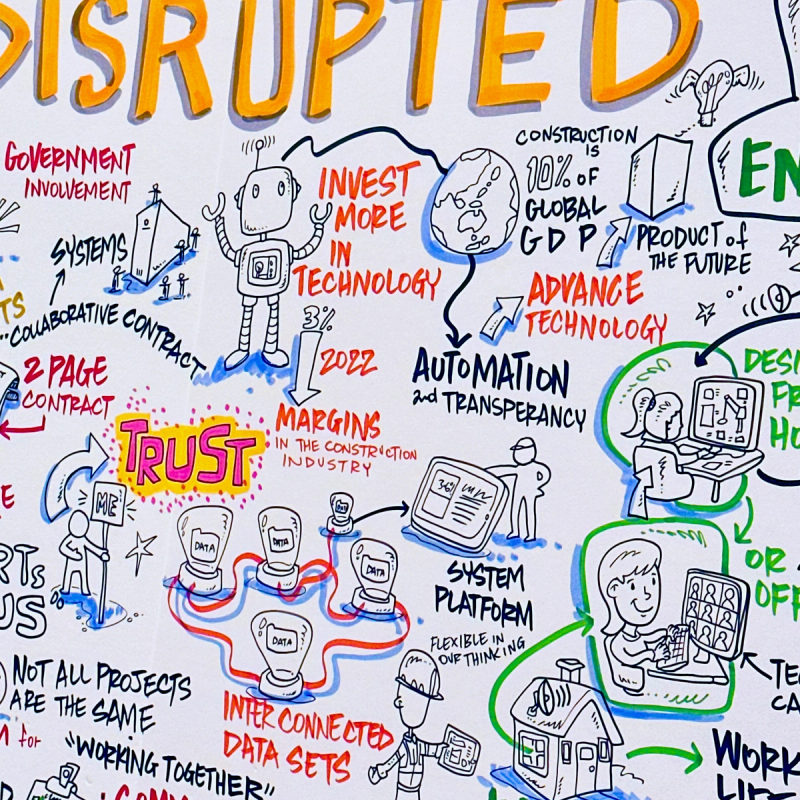 DISRUPTED
GOVERNMENT
INVOLVEMENT
SYSTEMS
"COLLABORATIVE CONTRACT
TS
2 PAGE
CONTRACT
INVEST
MORE
IN
TECHNOLOGY
3%
2022
MARGINS
IN THE CONSTRUCTION
INDUSTRY
CONSTRUCTION
IS
10% OF
GLOBAL
GDP
PRODUCT of
THE FUTURE
EN
ADVANCE
TECHNOLOGY
AUTOMATION
and TRANSPERANCY
DESI
FR
HO
TRUST
E
ME
RTs
US
DATA
DATA
DATA
DATA
DATA
36°
SYSTEM
PLATFORM
FLEXIBLE IN
OUR THINKING
OR
OFF
TE
CA
NOT ALL PROJECTS
ARE THE SAME
for
"WORKING TOGETHER"
INTERCONNECTED
DATA SETS
WORK
LIFE